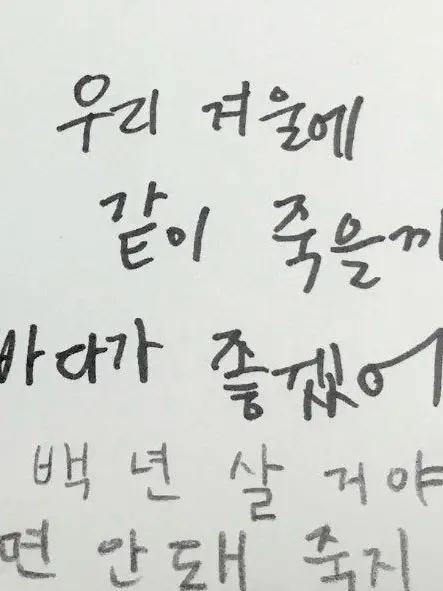 우리 겨울에
같이 죽을까
바다가 좋겠어
백 년 살 거야
면 안돼 죽지